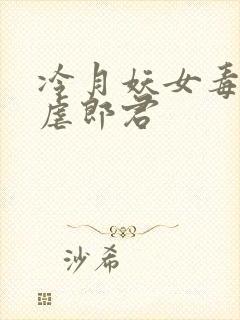 冷月妖女毒
虐郎君
沙希